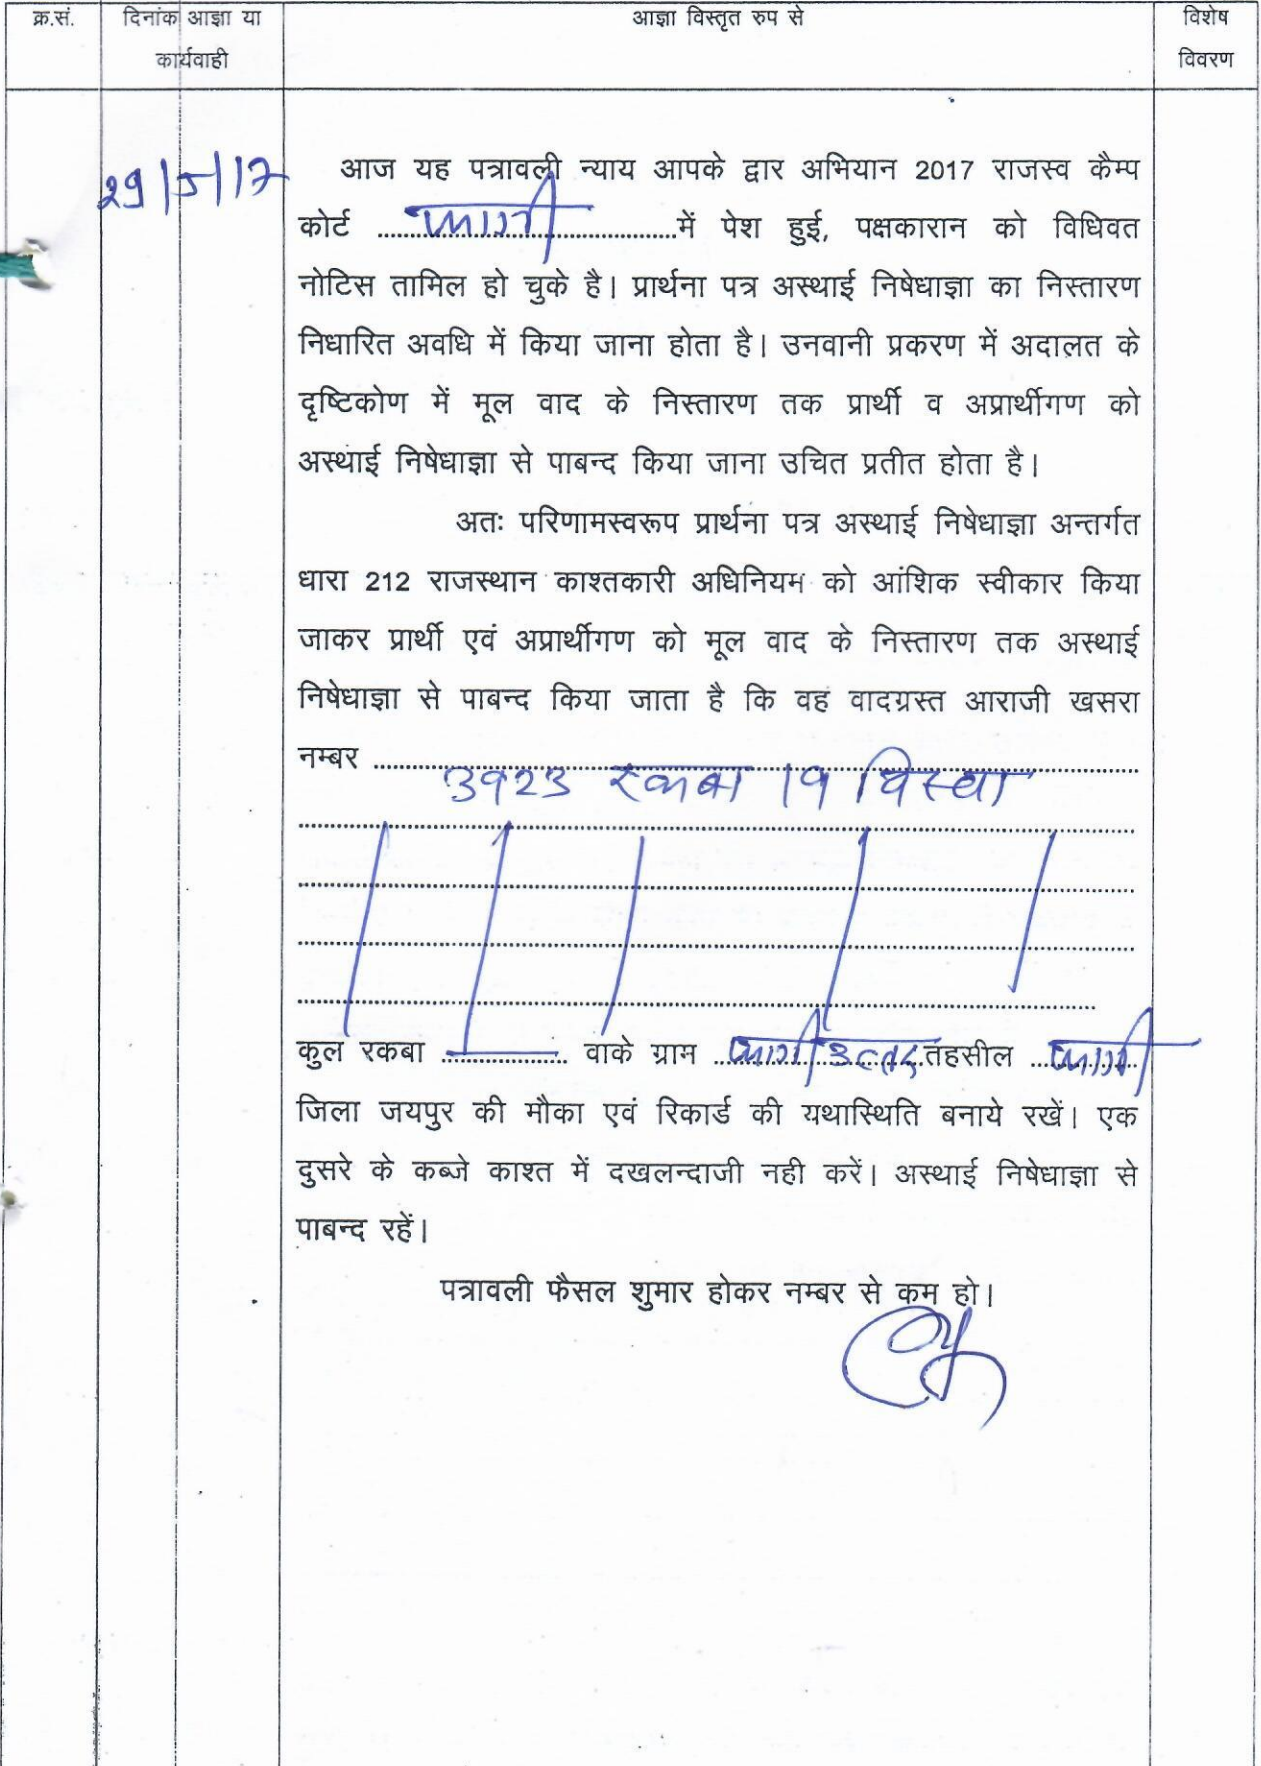 क्र.सं. दिनांक आज्ञा या आज्ञा विस्तृत रुप से विशेष
कार्यवाही विवरण
29/5/17 आज यह पत्रावली न्याय आपके द्वार अभियान 2017 राजस्व कैम्प
कोर्ट ....फागी....में पेश हुई, पक्षकारान को विधिवत
नोटिस तामिल हो चुके है। प्रार्थना पत्र अस्थाई निषेधाज्ञा का निस्तारण
निधारित अवधि में किया जाना होता है। उनवानी प्रकरण में अदालत के
दृष्टिकोण में मूल वाद के निस्तारण तक प्रार्थी व अप्रार्थीगण को
अस्थाई निषेधाज्ञा से पाबन्द किया जाना उचित प्रतीत होता है।
अतः परिणामस्वरूप प्रार्थना पत्र अस्थाई निषेधाज्ञा अन्तर्गत
धारा 212 राजस्थान काश्तकारी अधिनियम को आंशिक स्वीकार किया
जाकर प्रार्थी एवं अप्रार्थीगण को मूल वाद के निस्तारण तक अस्थाई
निषेधाज्ञा से पाबन्द किया जाता है कि वह वादग्रस्त आराजी खसरा
नम्बर ....
3923 रकबा 19 विस्वा
कुल रकबा .... वाके ग्राम ....फागी....तहसील ....फागी....
जिला जयपुर की मौका एवं रिकार्ड की यथास्थिति बनाये रखें। एक
दुसरे के कब्जे काश्त में दखलन्दाजी नही करें। अस्थाई निषेधाज्ञा से
पाबन्द रहें।
पत्रावली फैसल शुमार होकर नम्बर से कम हो।